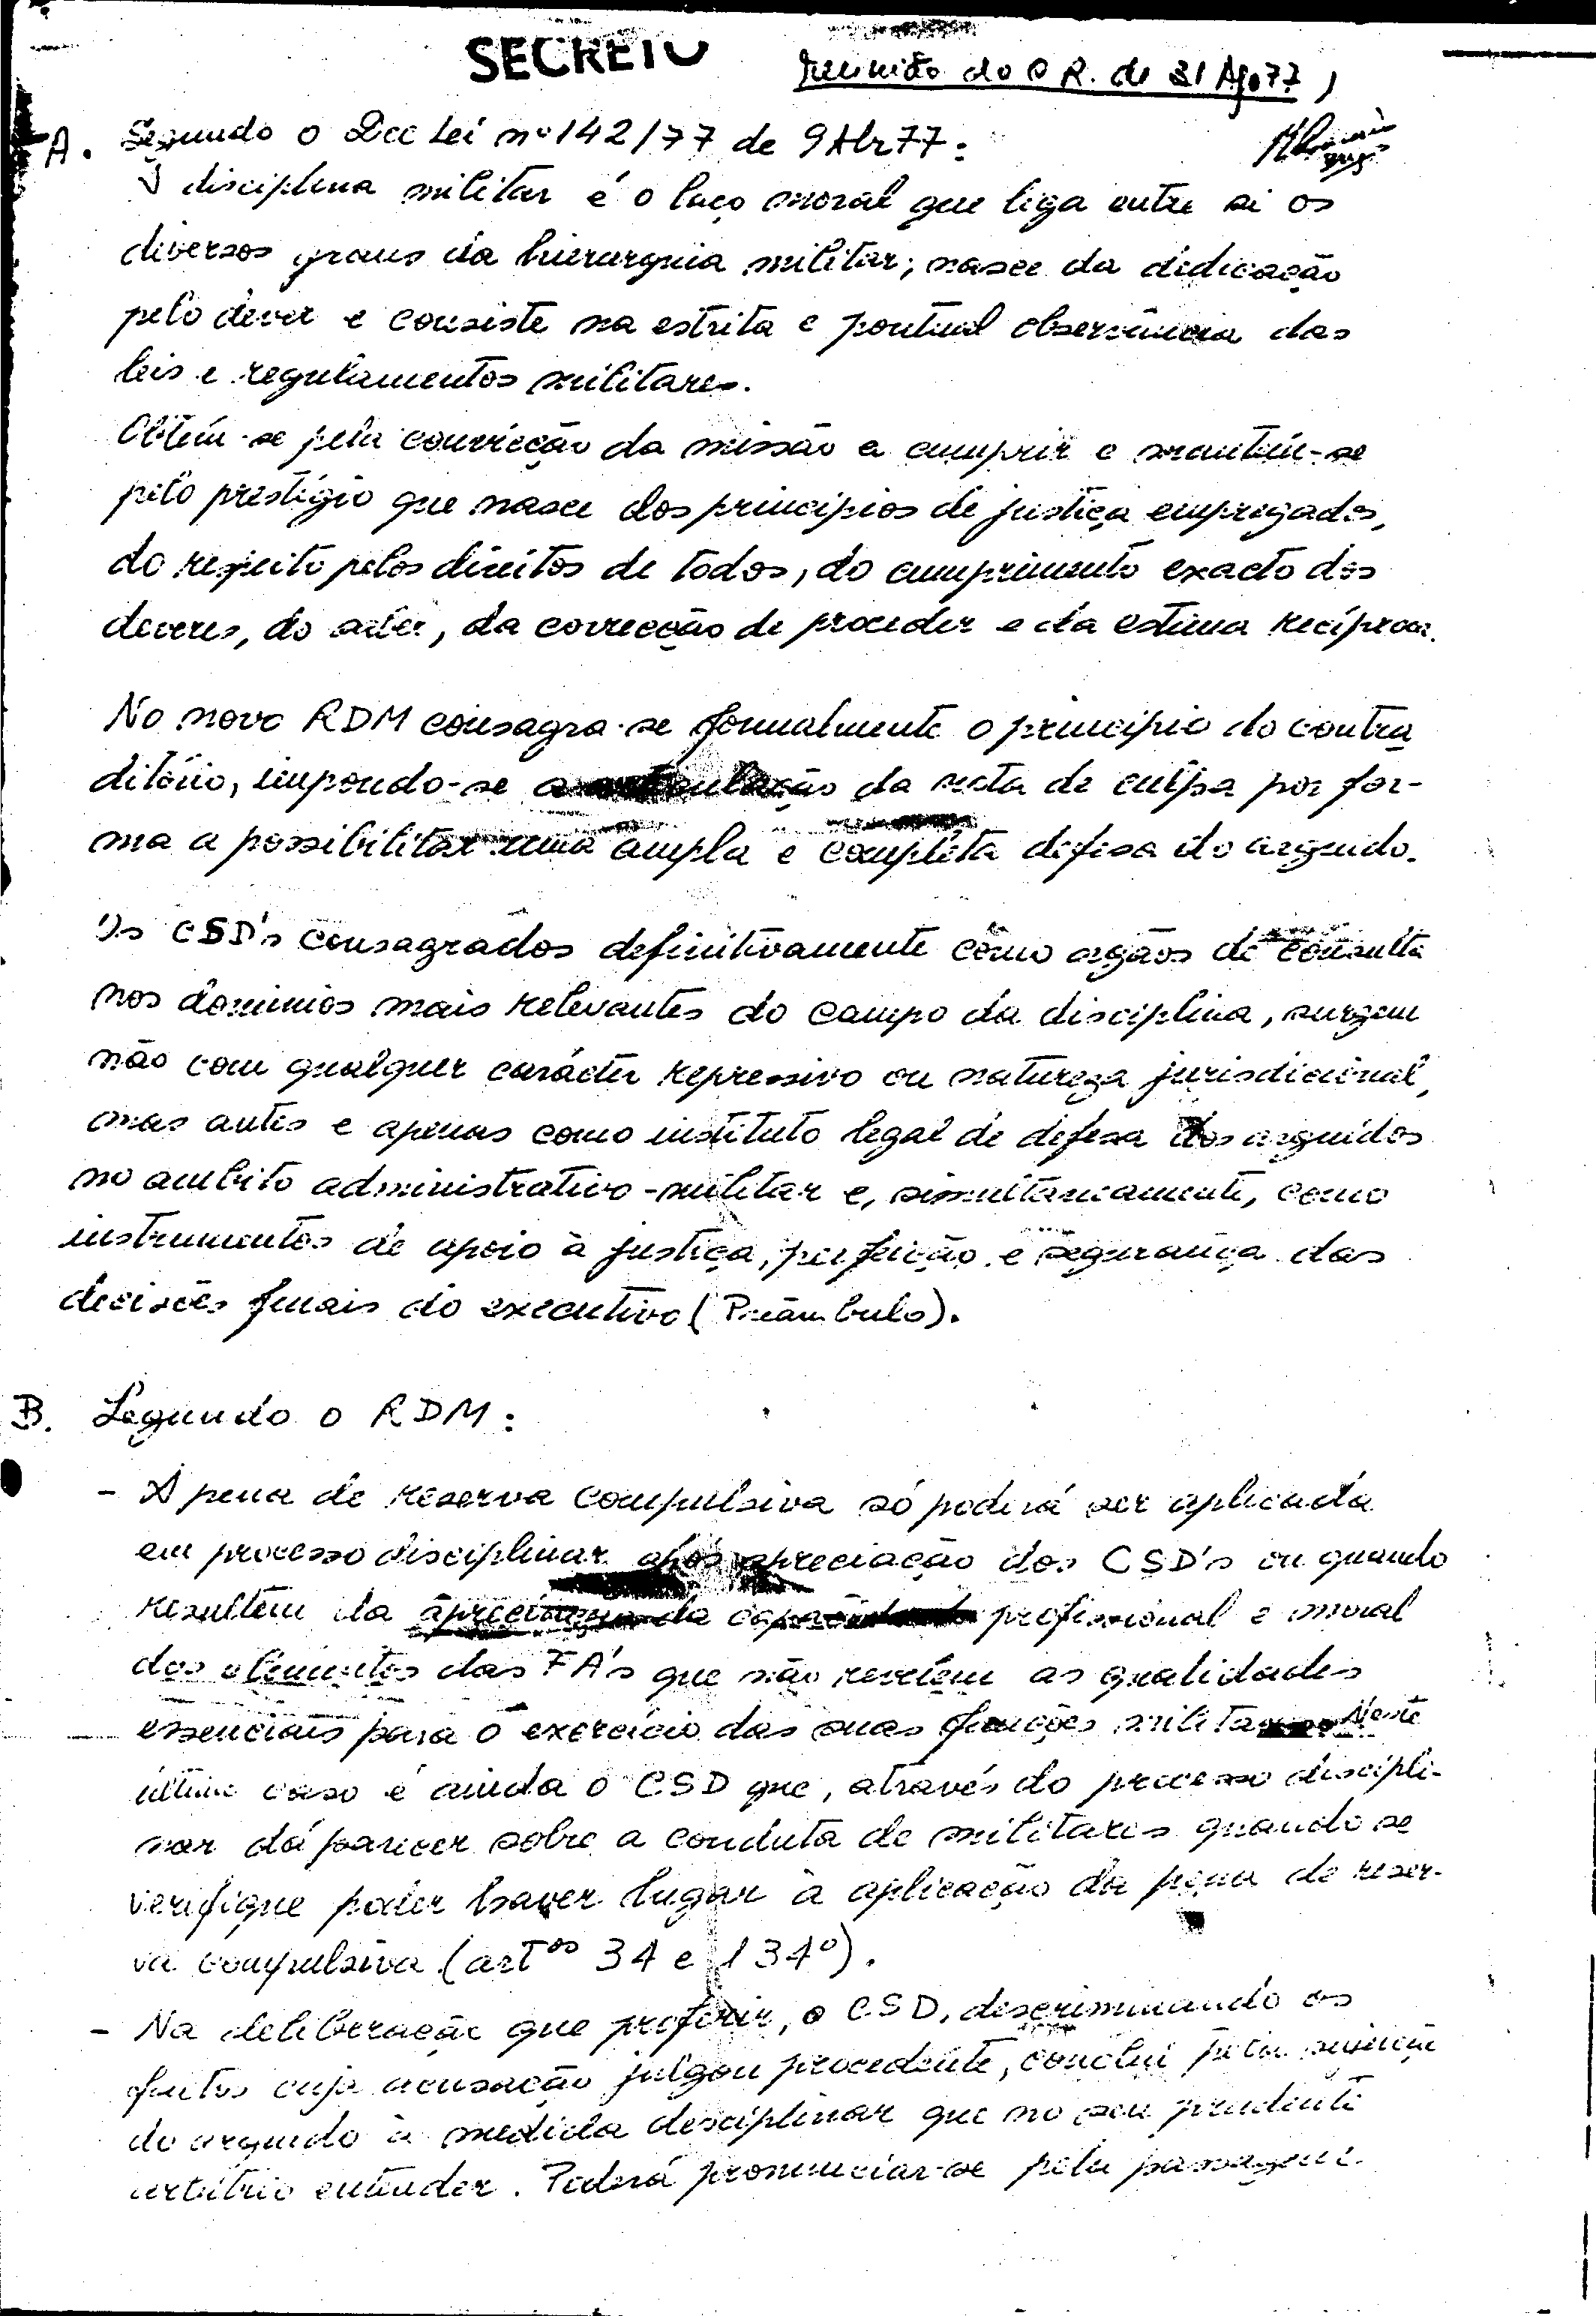 SECRETO
Reunião do C R. de 31 Ago 77
A. Segundo o Dec Lei nº 142/77 de 9 Abr 77:
A disciplina militar é o laço moral que liga entre si os
diversos graus da hierarquia militar; nasce da dedicação
pelo dever e consiste na estrita e pontual observância das
leis e regulamentos militares.
Obtém-se pela convicção da missão a cumprir e mantém-se
pelo prestígio que nasce dos princípios de justiça empregados,
do respeito pelos direitos de todos, do cumprimento exacto dos
deveres, do saber, da correcção de proceder e da estima recíproca.
No novo RDM consagra-se formalmente o princípio do contra
ditório, impondo-se a articulação da nota de culpa por for-
ma a possibilitar uma ampla e completa defesa do arguido.
Os CSD's consagrados definitivamente como orgãos de consulta
nos dominios mais relevantes do campo da disciplina, surgem
não com qualquer carácter repressivo ou natureza jurisdicional,
mas antes e apenas como instituto legal de defesa dos arguidos
no ambito administrativo-militar e, simultaneamente, como
instrumentos de apoio à justiça, perfeição e segurança das
decisões finais do executivo (Preâmbulo).
B. Segundo o RDM:
- A pena de reserva compulsiva só poderá ser aplicada
em processo disciplinar após apreciação dos CSD's ou quando
resultem da apreciação da capacidade profissional e moral
dos elementos das FA's que não revelem as qualidades
essenciais para o exercício das suas funções militares Neste
último caso é ainda o CSD que, através do processo discipli-
nar dá parecer sobre a conduta de militares quando se
verifique poder haver lugar à aplicação da pena de reser-
va compulsiva (artºs 34 e 134º).
- Na deliberação que proferir, o CSD, descriminando os
factos cuja acusação julgou procedente, conclui pela sujeição
do arguido à medida desciplinar que no seu prudente
arbítrio entender. Poderá pronunciar-se pela passagem